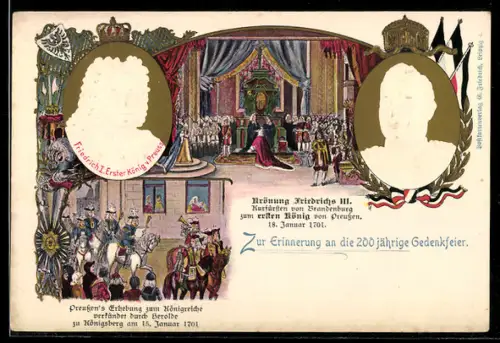 Friedrich I. Erster König v. Preuss.
Krönung Friedrichs III.
Kurfürsten von Brandenburg
zum ersten König von Preußen.
18. Januar 1701.
Zur Erinnerung an die 200 jährige Gedenkfeier.
Preußen's Erhebung zum Königreiche
verkündet durch Herolde
zu Königsberg am 15. Januar 1701